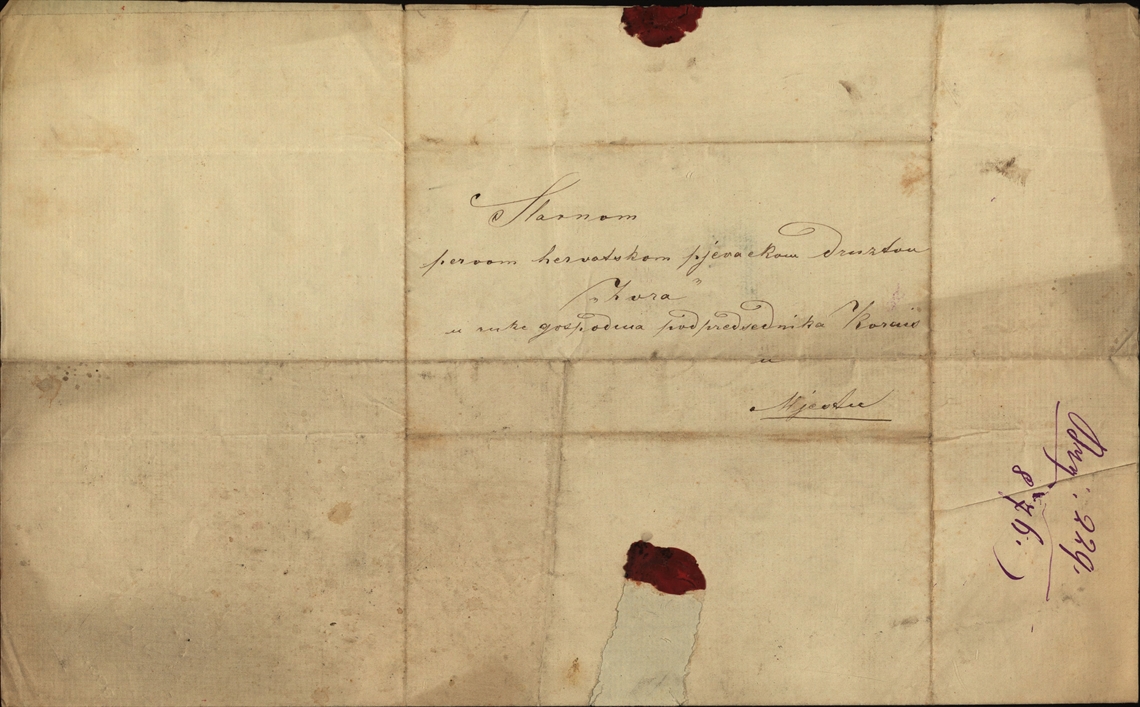 Slavnom
pervom hervatskom pjevačkom družtvu
„Zora"
u ruke gospodina podpredsednika
u
Mjestu
229.
876.